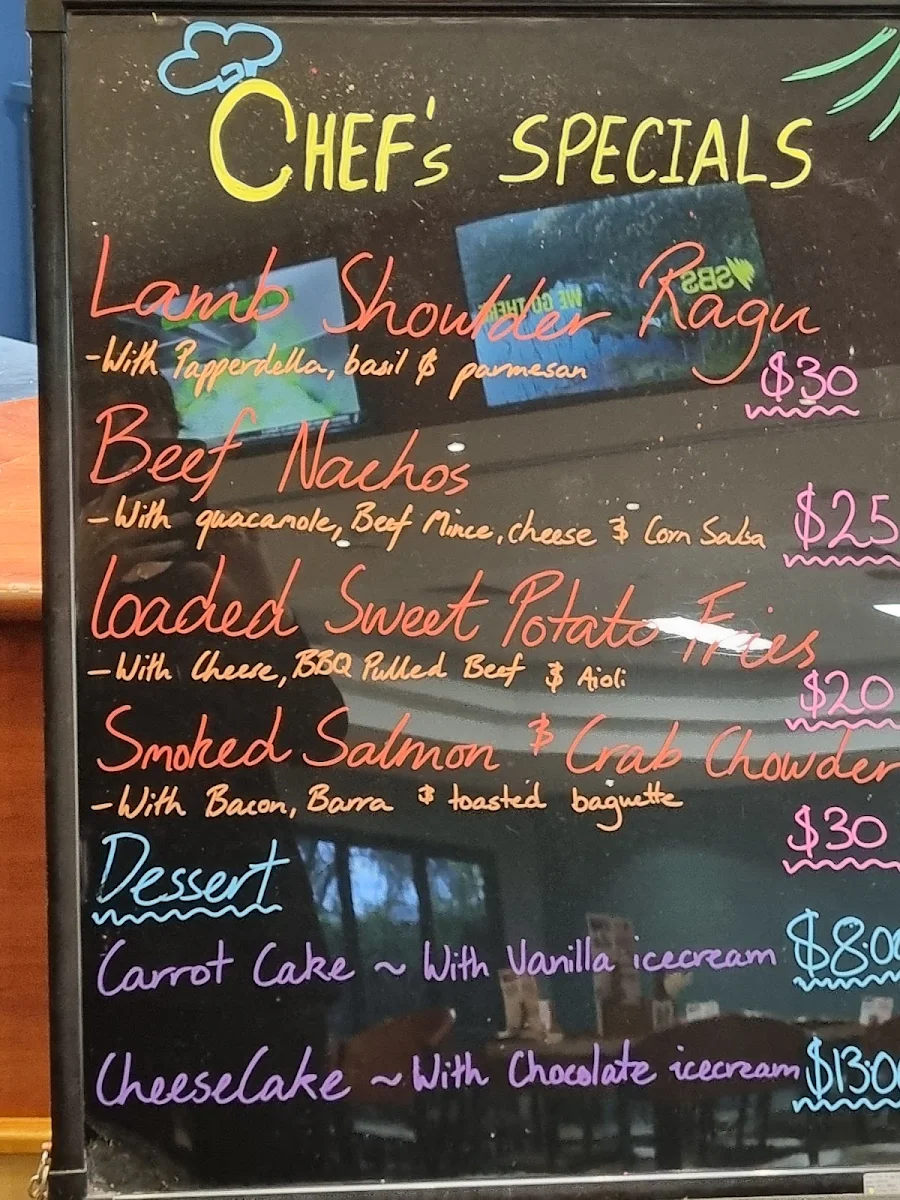 CHEF's SPECIALS
Lamb Shoulder Ragu
-With Papperdella, basil & parmesan
$30
Beef Nachos
-With guacamole, Beef Mince, cheese & Corn Salsa
$25
loaded Sweet Potato Fries
-With Cheese, BBQ Pulled Beef & Aioli
$20
Smoked Salmon & Crab Chowder
-With Bacon, Barra & toasted baguette
$30
Dessert
Carrot Cake ~ With Vanilla icecream $8.00
CheeseCake ~ With Chocolate icecream $13.00
SBS
WE GO